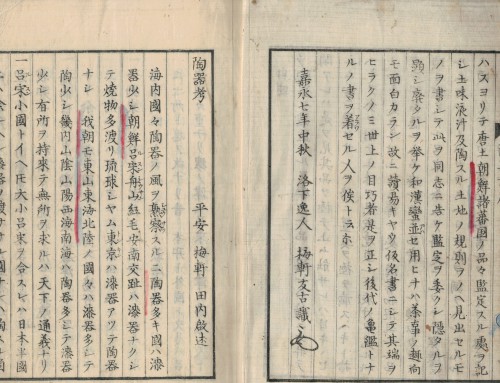 ハスヨリテ唐土朝鮮諸蕃国ノ品々鑑定スル處ヲ記
シ土味液汁及陶スル土地ノ規則ヲソヘ見出セルモ
ノヲ書シテ此ヲ同志ニ告ケ鑑定ヲ委クシ隠タルヲ
顕シ廃タルヲ挙ケ和漢蛮並セ用ヒナハ茶事ノ趣向
モ面白カラン故ニ讀易キヤウ仮名書ニシテ其端ヲ
ヒラクノミ世上ノ目巧者是ヲ正シ後代ノ亀鑑トナ
ルノ書ヲ著セル人ヲ俟トラホ
嘉永七年中秋 落下逸人 梅軒支古識
陶器考
平安 梅軒 田内啟述
海内國々陶器ノ風ヲ熟察スルニ陶器多キ國ハ漆
器少シ朝鮮呂宋船山紅毛安南交趾ハ漆器ナクシ
テ焼物多渡リ琉球シヤム東京ハ漆器アツテ陶器
ナシ 我朝モ東山東海北陸ノ國々ハ漆器多シテ
陶少シ幾内山陰山陽西海南海ハ陶器多シテ漆器
少シ有所ヲ持来テ無所ヲ求ルハ天下ノ通義ナリ
一呂宋小國トイヘ𪜈大小呂宋ヲ合スレハ日本半國